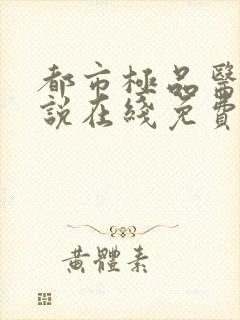 都市極品醫
說在綫免費
黃體素